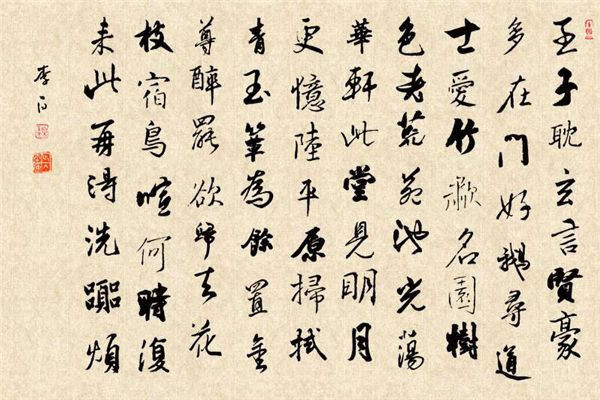 王子耽玄言賢豪
多在門好鵝尋道
士愛竹歗名園樹
色老荒苑池光蕩
華軒此堂見明月
更憶陸平原掃拭
青玉簟為餘置金
尊醉罷欲歸去花
枝宿鳥喧何時復
来此再得洗囂煩
李